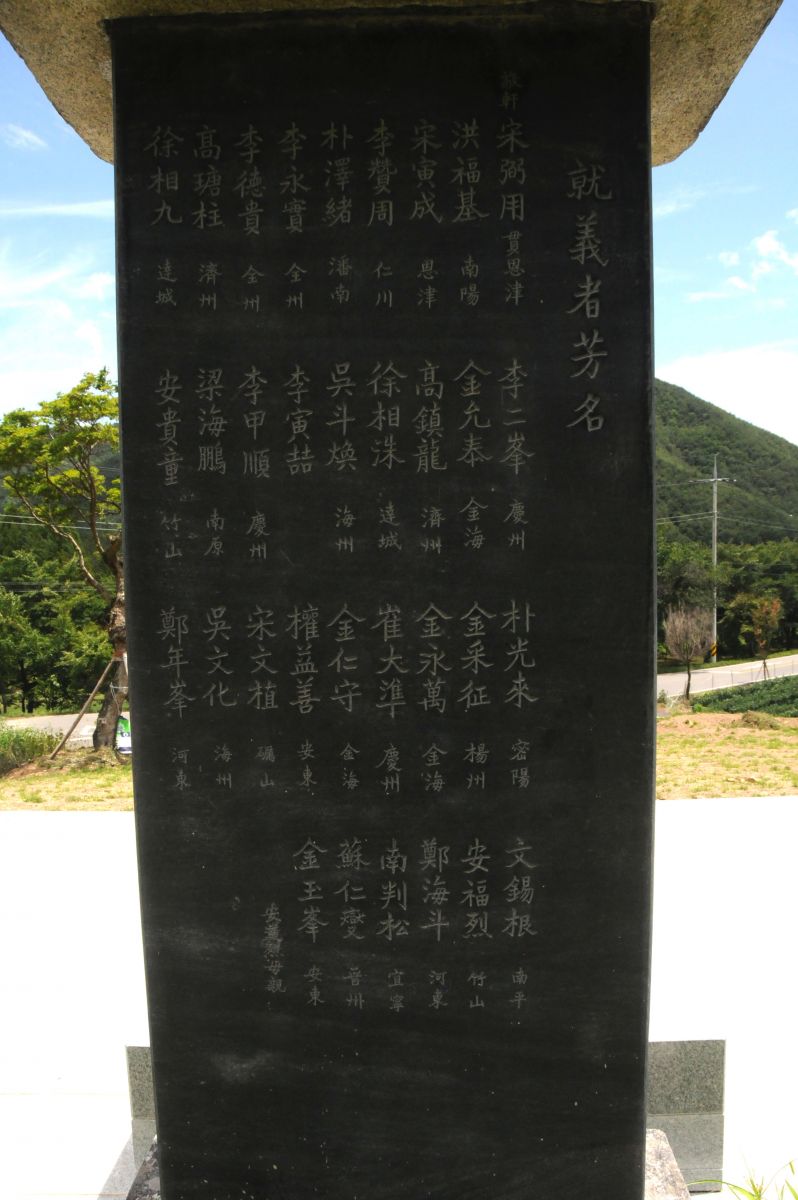 就義者芳名
宋弼用 貫恩津
李二峯 慶州
朴光來 密陽
文錫根 南平
洪福基 南陽
金允泰 金海
金采征 楊州
安福烈 竹山
宋寅成 恩津
高鎮龍 濟州
金永萬 金海
鄭海斗 河東
李贊周 仁川
徐相洙 達城
崔大準 慶州
南判松 宜寧
朴澤緒 潘南
吳斗煥 海州
金仁守 金海
蘇仁燮 晉州
李永實 全州
李寅喆
權益善 安東
金玉峯 安東
李德貴 全州
李甲順 慶州
宋文植 礪山
母親
高瑭柱 濟州
梁海鵬 南原
吳文化 海州
徐相九 達城
安貴童 竹山
鄭年峯 河東